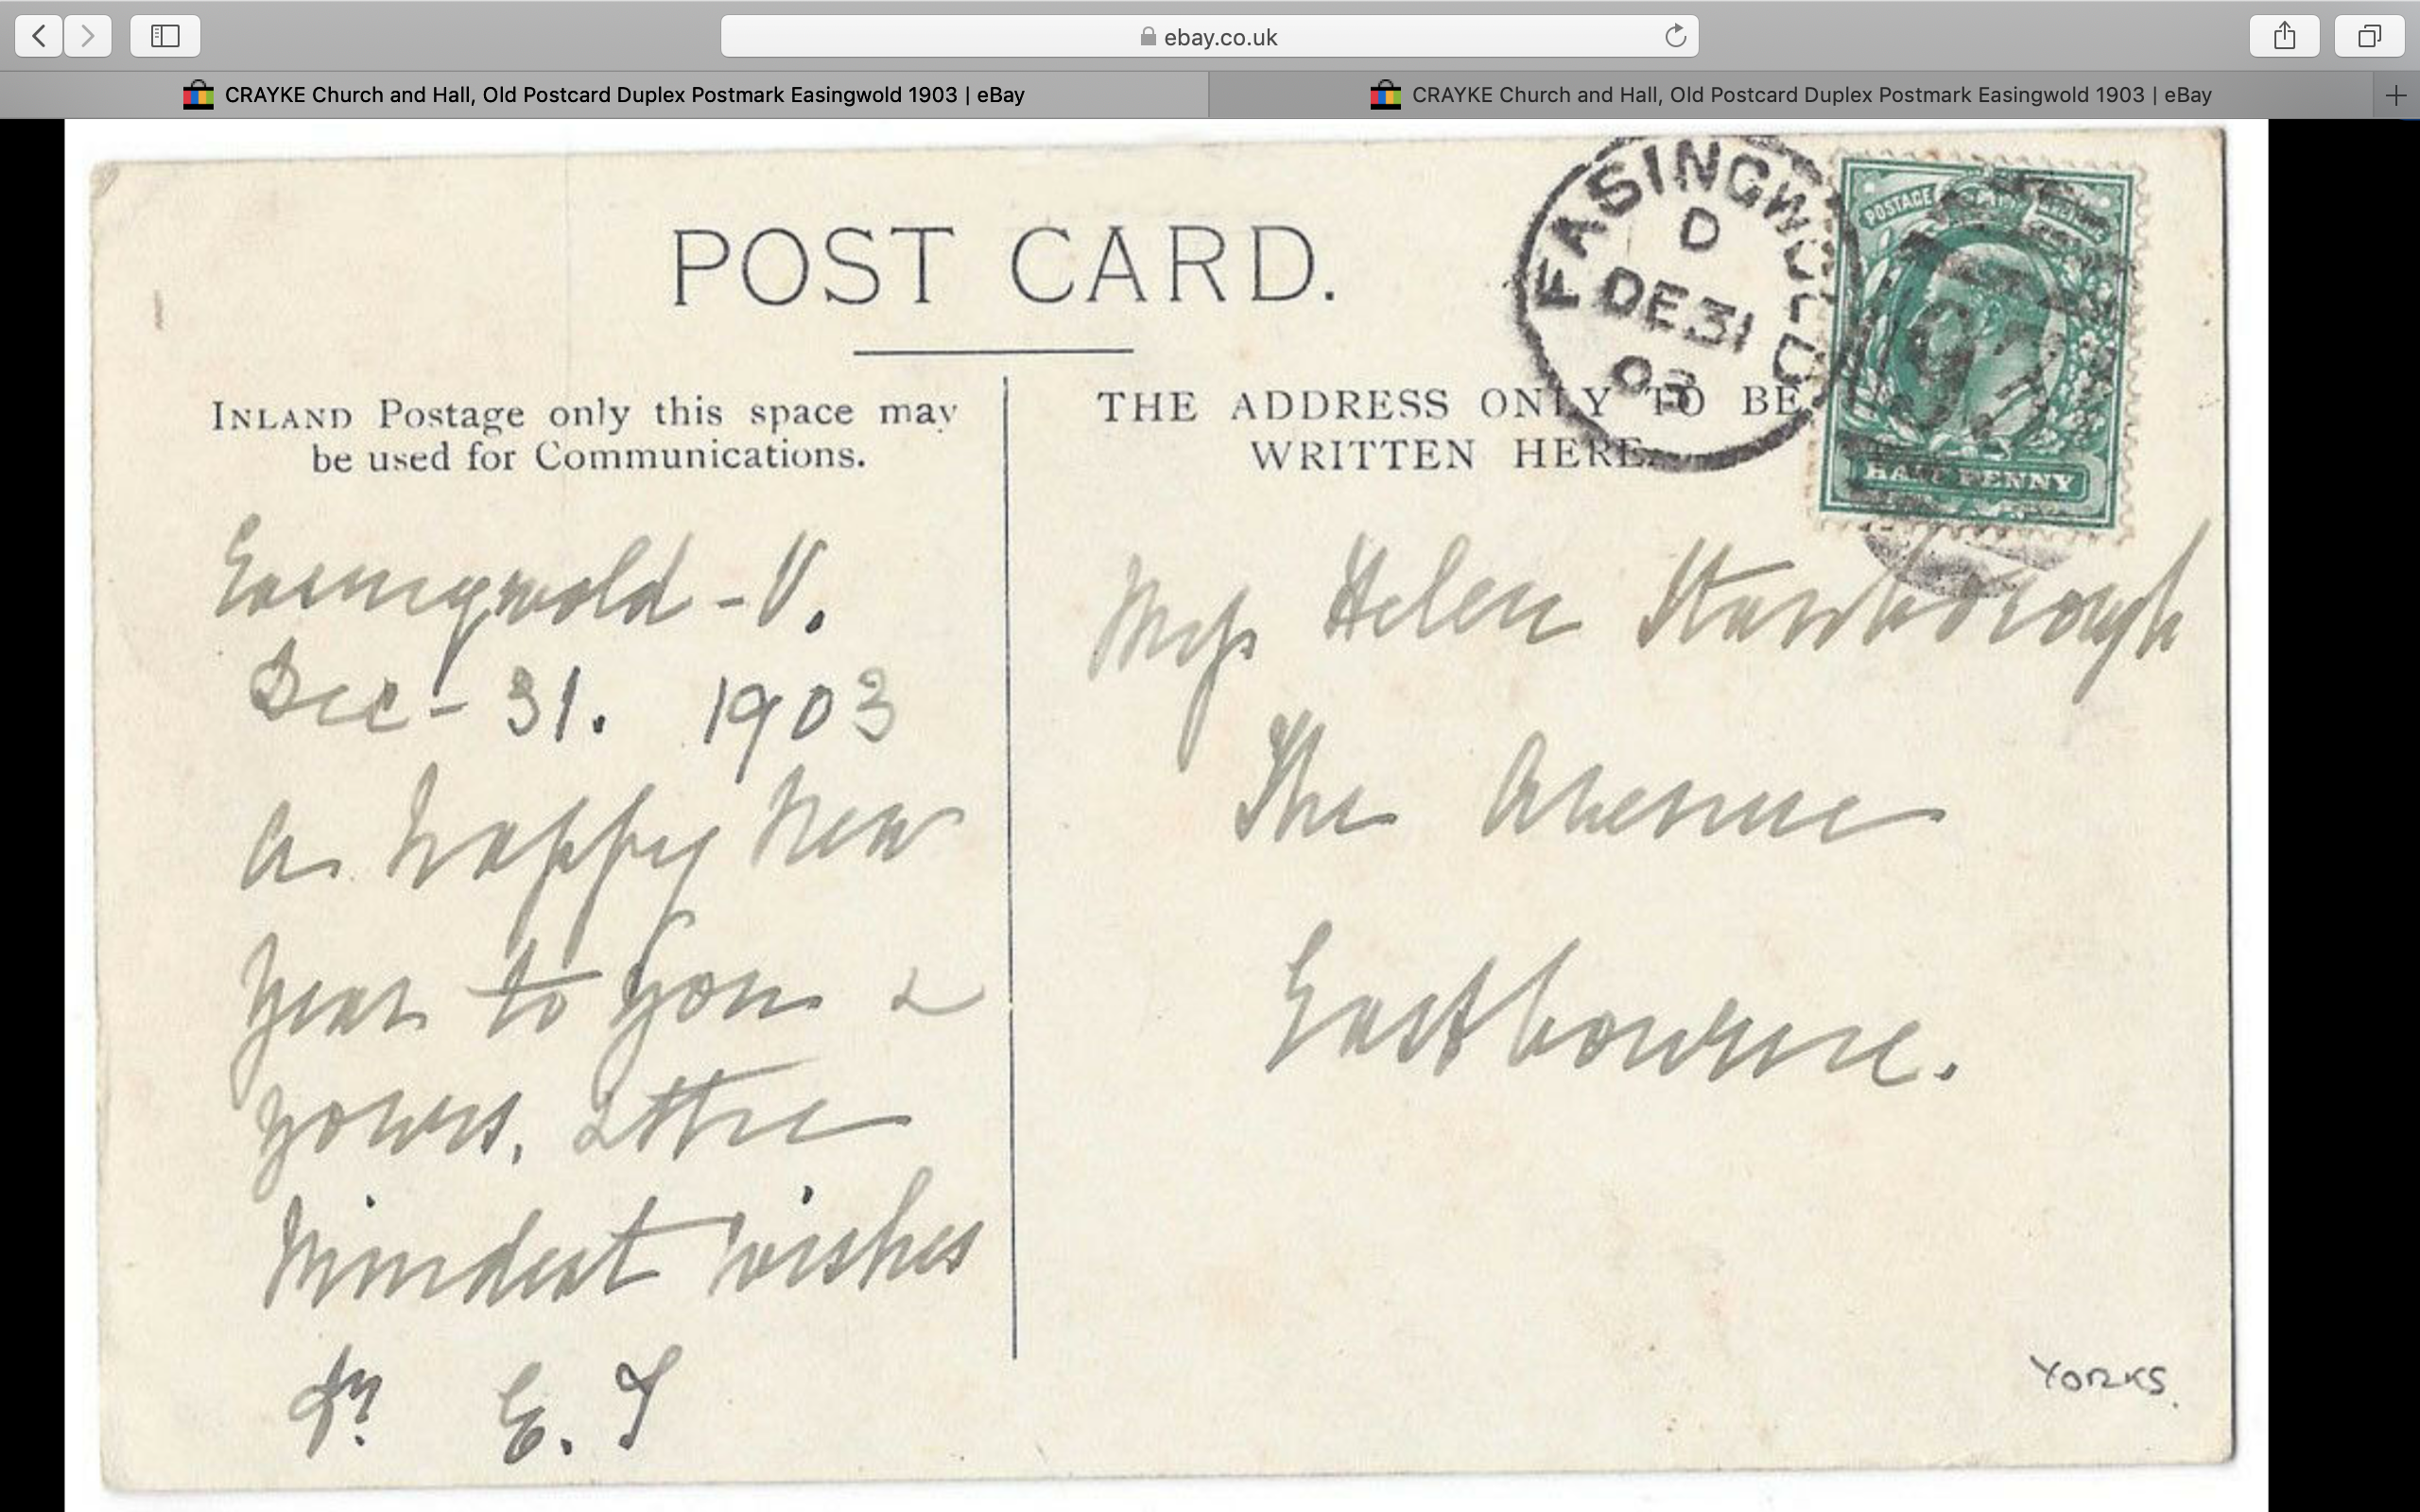 ebay.co.uk
CRAYKE Church and Hall, Old Postcard Duplex Postmark Easingwold 1903 | eBay
CRAYKE Church and Hall, Old Postcard Duplex Postmark Easingwold 1903 | eBay
POST CARD.
EASINGWOLD
D
DE 31
03
POSTAGE
HALF PENNY
INLAND Postage only this space may
be used for Communications.
THE ADDRESS ONLY TO BE
WRITTEN HERE.
Easingwold - V.
Dec - 31. 1903
A happy New
Year to you &
yours, & the
kindest wishes
fm E. T
Miss Helen
The Avenue
Eastbourne.
YORKS.